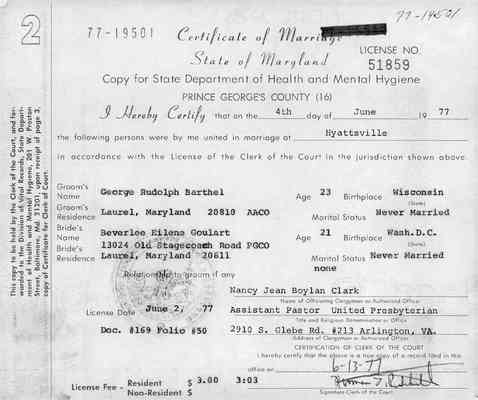 77-19501
2
77-19501 Certificate of Marriage
State of Maryland
LICENSE NO.
51859
Copy for State Department of Health and Mental Hygiene
PRINCE GEORGE'S COUNTY (16)
I Hereby Certify that on the 4th day of June 1977
the following persons were by me united in marriage at Hyattsville
in accordance with the License of the Clerk of the Court in the jurisdiction shown above.
Groom's Name George Rudolph Barthel Age 23 Birthplace Wisconsin
(State)
Groom's Residence Laurel, Maryland 20810 AACO Marital Status Never Married
Bride's Name Beverlee Eilene Goulart Age 21 Birthplace Wash.D.C.
(State)
Bride's Residence 13024 Old Stagecoach Road PGCO
Laurel, Maryland 20611 Marital Status Never Married
Relationship to groom if any none
Nancy Jean Boylan Clark
Name of Officiating Clergyman or Authorized Officer
License Date June 2, 77 Assistant Pastor United Presbyterian
Title and Religious Denomination or Office
Doc. #169 Folio #50 2910 S. Glebe Rd. #213 Arlington, VA.
Address of Clergyman or Authorized Officer
CERTIFICATION OF CLERK OF THE COURT
I hereby certify that the above is a true copy of a record filed in this
office on 6-13-77
License Fee - Resident $ 3.00 3:03
Non-Resident $
Signature-Clerk of the Court
This copy to be held by the Clerk of the Court, and for-
warded to the Division of Vital Records, State Depart-
ment of Health and Mental Hygiene, 201 W. Preston
Street, Baltimore, Md. 21201 upon receipt of page 3,
copy of Certificate for Clerk of Court.